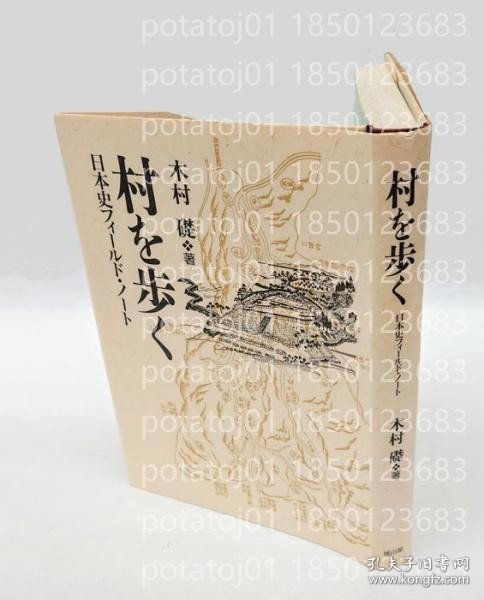 potatoj01 1850123683
potatoj01 1850123683
potatoj01 1850123683
potatoj01 1850123683
potatoj01 1850123683
potatoj01 1850123683
potatoj01 1850123683
potatoj01 1850123683
potatoj01 1850123683
potatoj01 1850123683
木村 礎 著
村を歩く
日本史フィールド・ノート
村を歩く
日本史フィールド・ノート
木村 礎 著
孔夫子旧书网
www.kongfz.com